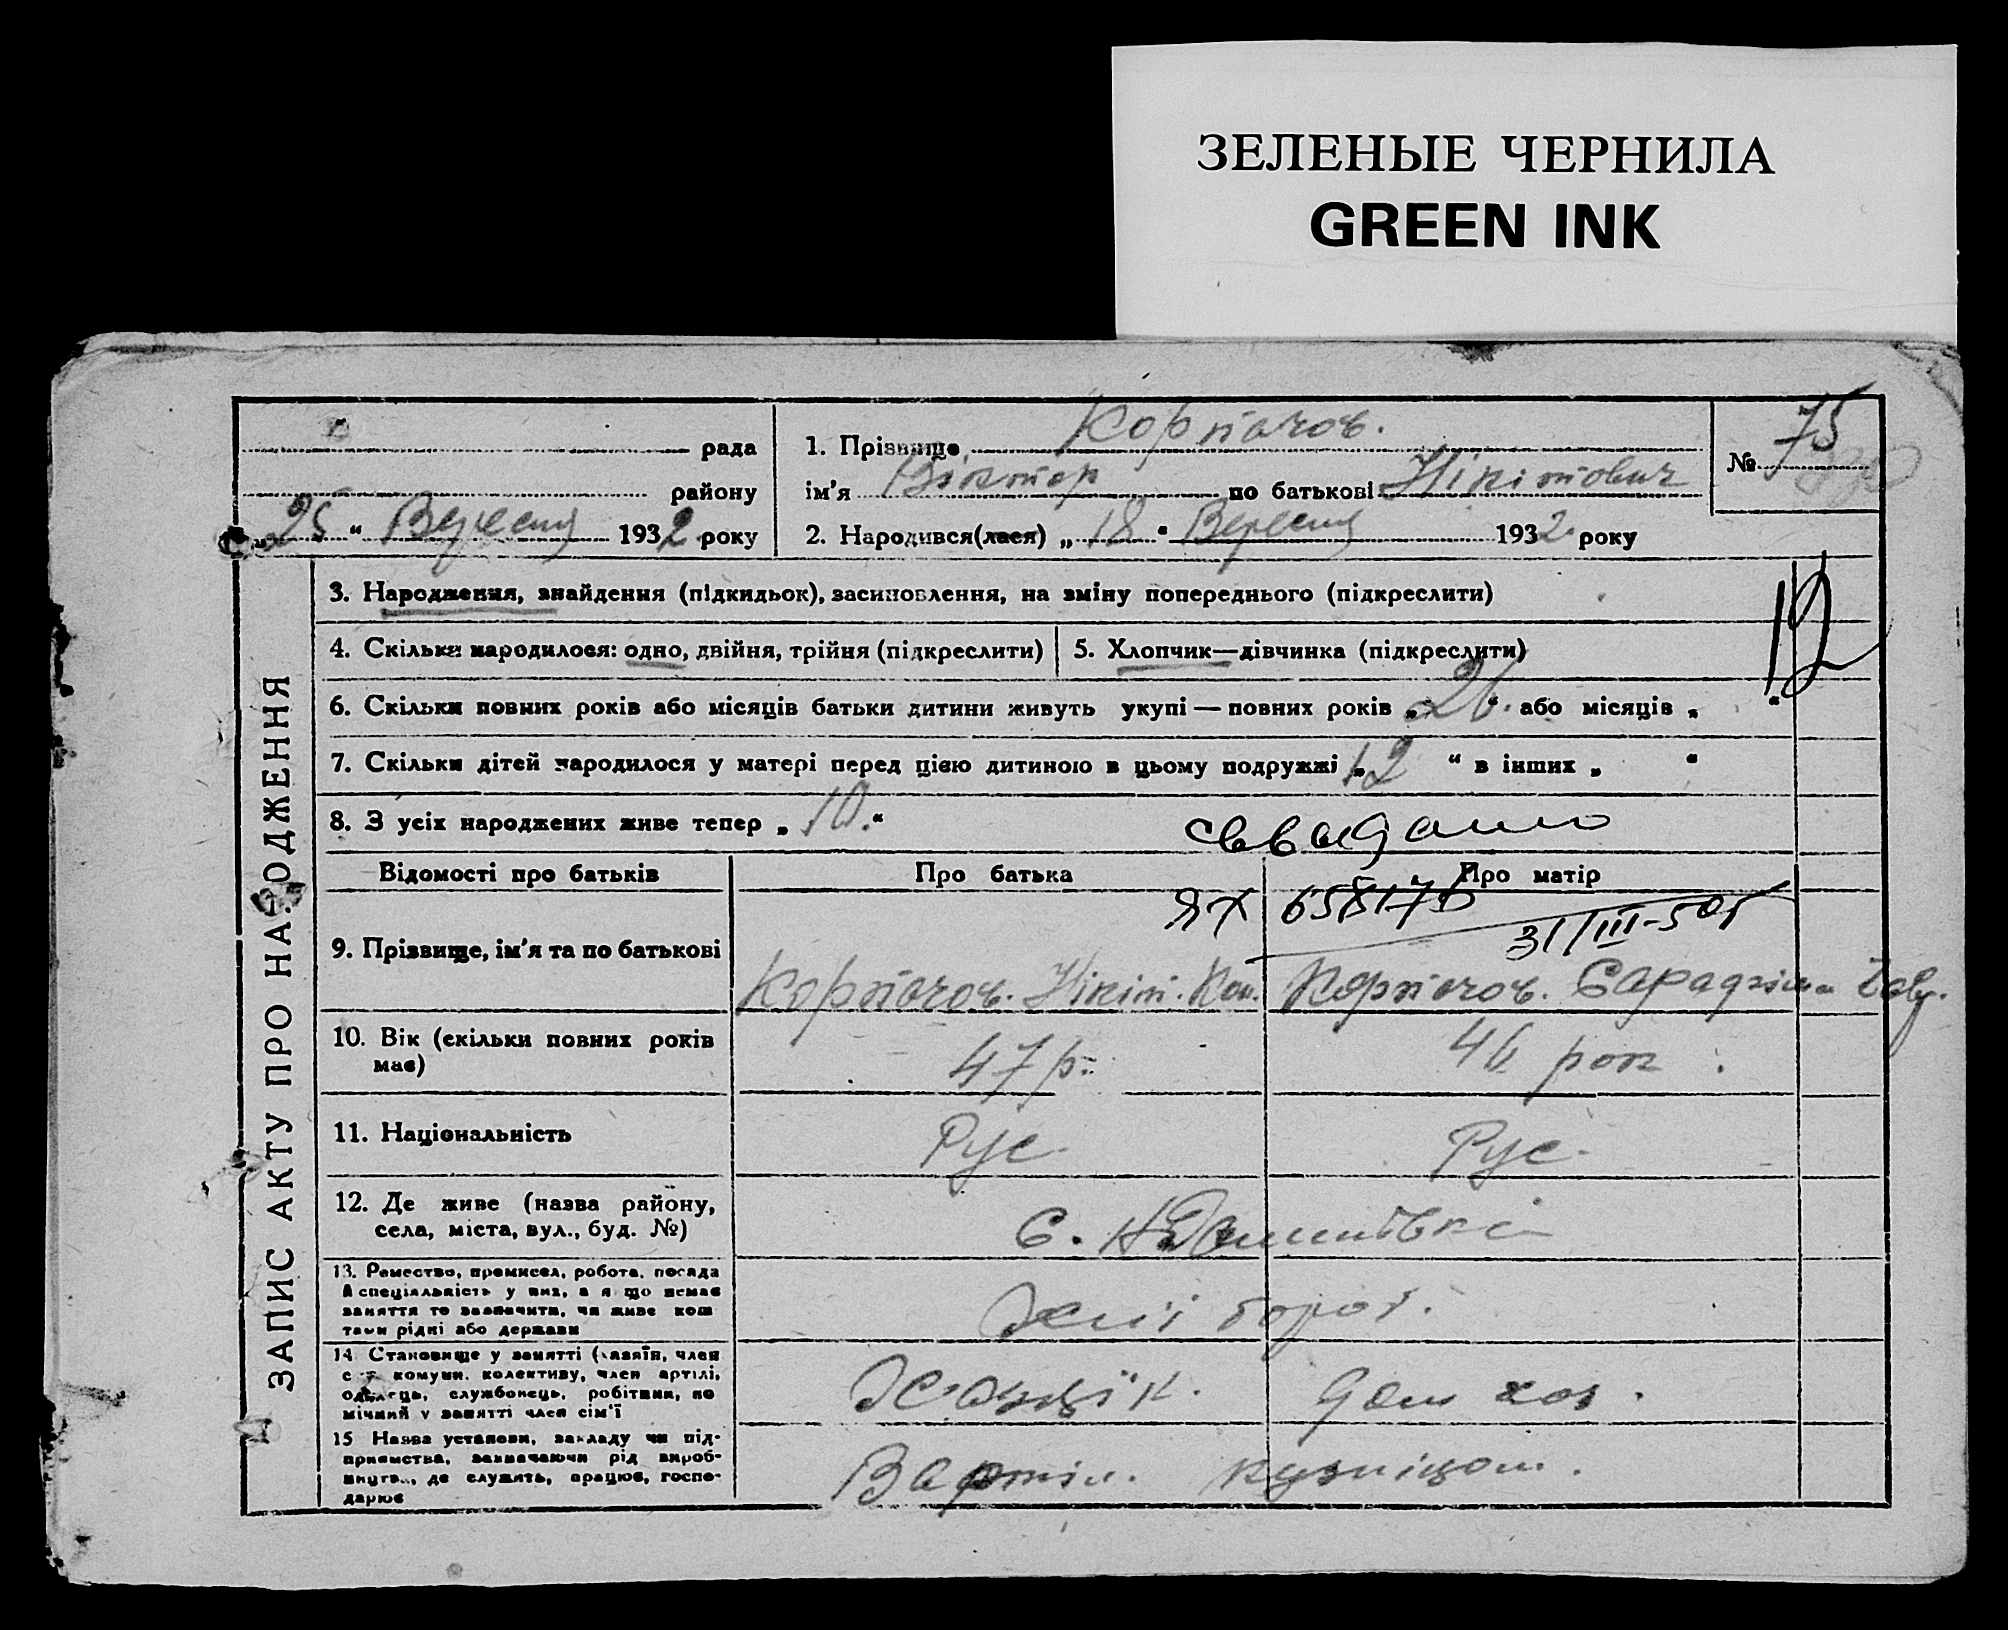 ЗЕЛЕНЫЕ ЧЕРНИЛА
GREEN INK
рада
району
„25“ Вересня 1932 року
1. Прізвище Корпачов.
ім'я Віктор по батькові Нікітович
2. Народився(лася) „18“ Вересня 1932 року
№ 75
ЗАПИС АКТУ ПРО НАРОДЖЕННЯ
3. Народження, знайдення (підкидьок), засиновлення, на зміну попереднього (підкреслити)
12
4. Скільки народилося: одно, двійня, трійня (підкреслити)
5. Хлопчик—дівчинка (підкреслити)
6. Скільки повних років або місяців батьки дитини живуть укупі — повних років „26.“ або місяців „ “
7. Скільки дітей народилося у матері перед цією дитиною в цьому подружжі „12“ в інших „ “
8. З усіх народжених живе тепер „10.“
Відомості про батьків
Про батька
Про матір
ЯХ 658175
31/III-50г
9. Прізвище, ім'я та по батькові
Корпачов. Нікіт. Кон.
Корпачов.
10. Вік (скільки повних років має)
47 р.
46 рок.
11. Національність
Рус.
Рус.
12. Де живе (назва району, села, міста, вул., буд. №)
С.
13. Ремество, промисел, робота, посада
й спеціяльність у них, а якщо немає
заняття то зазначити, чи живе кош
тами рідні або держави
14. Становище у занятті (хазяїн, член
с.-г. комуни. колективу, член артілі,
одинець, службовець, робітник, по
мічний у занятті член сім'ї
дом хоз.
15 Назва установи, закладу чи під-
приємства, зазначаючи рід вироб-
ництва, де служить, працює, госпо-
дарює
В артіл.